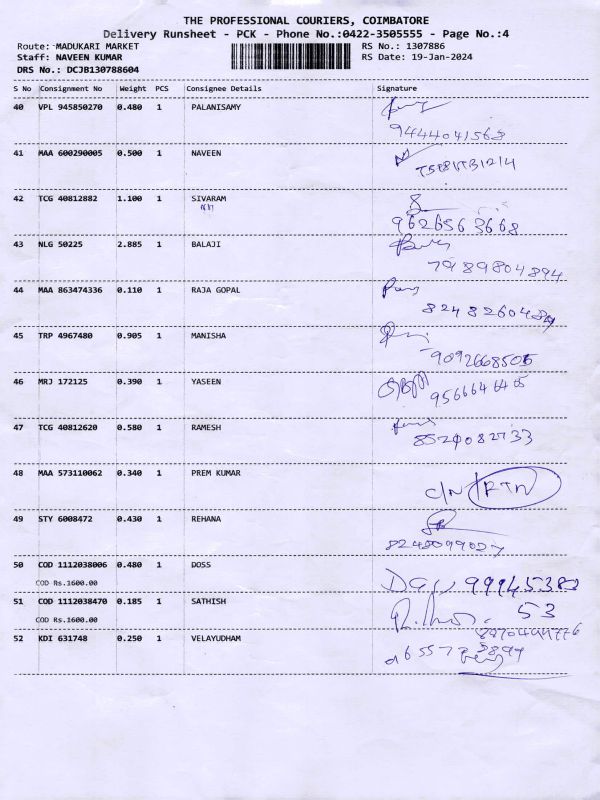 THE PROFESSIONAL COURIERS, COIMBATORE
Delivery Runsheet - PCK - Phone No.:0422-3505555 - Page No.:4
Route: MADUKARI MARKET RS No.: 1307886
Staff: NAVEEN KUMAR RS Date: 19-Jan-2024
DRS No.: DCJB130788604
S No Consignment No Weight PCS Consignee Details Signature
40 VPL 945850270 0.480 1 PALANISAMY
9444041568
41 MAA 600290005 0.500 1 NAVEEN
42 TCG 40812882 1.100 1 SIVARAM
9626563668
43 NLG 50225 2.885 1 BALAJI
7989804894
44 MAA 863474336 0.110 1 RAJA GOPAL
45 TRP 4967480 0.905 1 MANISHA
46 MRJ 172125 0.390 1 YASEEN
9566646405
47 TCG 40812620 0.580 1 RAMESH
48 MAA 573110062 0.340 1 PREM KUMAR
C/N RTN
49 STY 6008472 0.430 1 REHANA
50 COD 1112038006 0.480 1 DOSS
COD Rs.1600.00
51 COD 1112038470 0.185 1 SATHISH
53
COD Rs.1600.00
52 KDI 631748 0.250 1 VELAYUDHAM